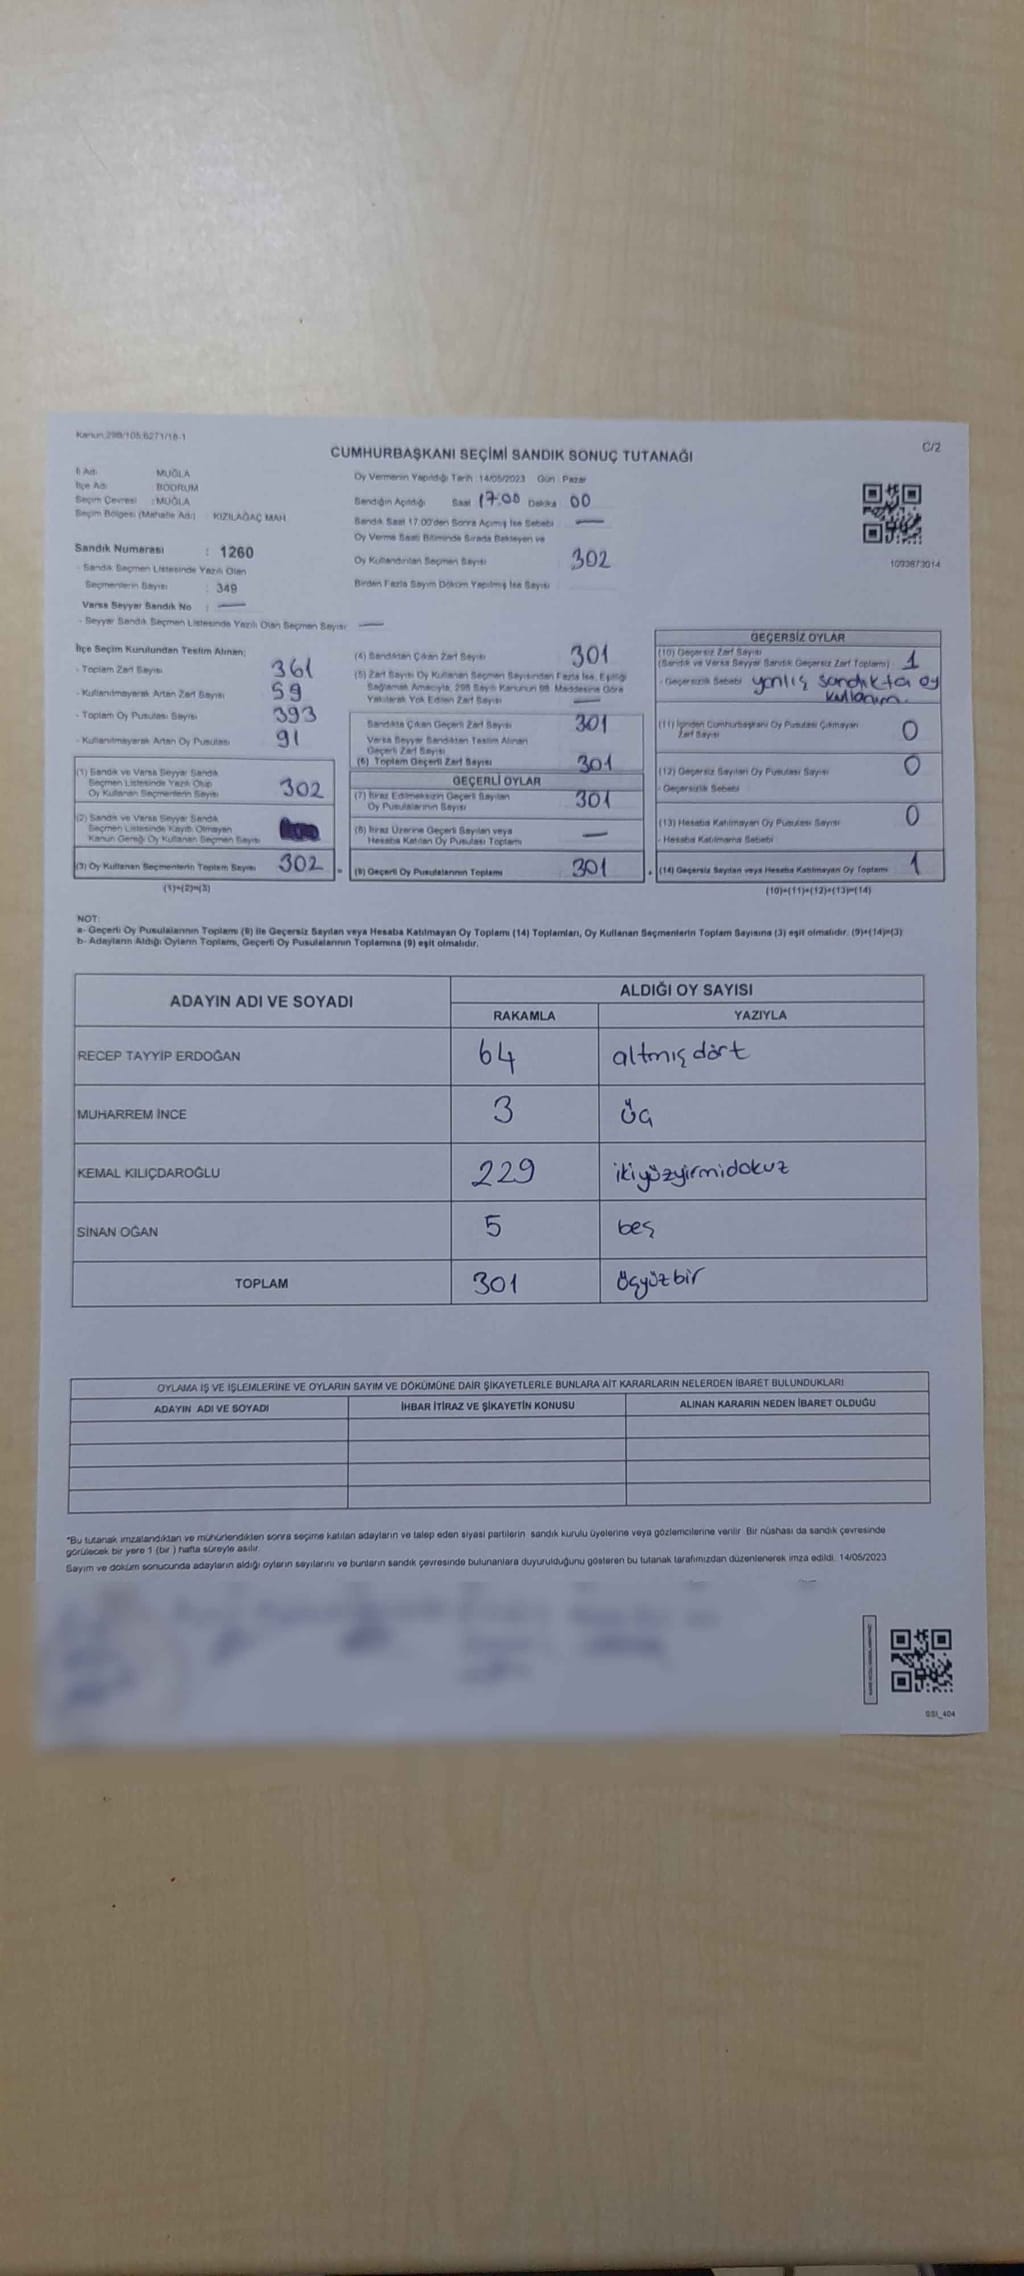 Kanun:298/105,6271/16-1
C/2
CUMHURBAŞKANI SEÇİMİ SANDIK SONUÇ TUTANAĞI
İl Adı MUĞLA
İlçe Adı BODRUM
Seçim Çevresi : MUĞLA
Seçim Bölgesi (Mahalle Adı) : KIZILAĞAÇ MAH.
Sandık Numarası : 1260
- Sandık Seçmen Listesinde Yazılı Olan
Seçmenlerin Sayısı : 349
Varsa Seyyar Sandık No : —
- Seyyar Sandık Seçmen Listesinde Yazılı Olan Seçmen Sayısı —
Oy Vermenin Yapıldığı Tarih : 14/05/2023 Gün : Pazar
Sandığın Açıldığı Saat 17:00 Dakika 00
Sandık Saat 17.00'den Sonra Açılmış İse Sebebi —
Oy Verme Saati Bitiminde Sırada Bekleyen ve
Oy Kullandırılan Seçmen Sayısı 302
Birden Fazla Sayım Döküm Yapılmış İse Sayısı
1093873014
İlçe Seçim Kurulundan Teslim Alınan;
- Toplam Zarf Sayısı 361
- Kullanılmayarak Artan Zarf Sayısı 59
- Toplam Oy Pusulası Sayısı 393
- Kullanılmayarak Artan Oy Pusulası 91
(1) Sandık ve Varsa Seyyar Sandık
Seçmen Listesinde Yazılı Olup
Oy Kullanan Seçmenlerin Sayısı 302
(2) Sandık ve Varsa Seyyar Sandık
Seçmen Listesinde Kayıtlı Olmayan
Kanun Gereği Oy Kullanan Seçmen Sayısı
(3) Oy Kullanan Seçmenlerin Toplam Sayısı 302 =
(1)+(2)=(3)
(4) Sandıktan Çıkan Zarf Sayısı 301
(5) Zarf Sayısı Oy Kullanan Seçmen Sayısından Fazla İse, Eşitliği
Sağlamak Amacıyla, 298 Sayılı Kanunun 98. Maddesine Göre
Yakılarak Yok Edilen Zarf Sayısı —
Sandıkta Çıkan Geçerli Zarf Sayısı 301
Varsa Seyyar Sandıktan Teslim Alınan
Geçerli Zarf Sayısı
(6) Toplam Geçerli Zarf Sayısı 301
GEÇERLİ OYLAR
(7) İtiraz Edilmeksizin Geçerli Sayılan
Oy Pusulalarının Sayısı 301
(8) İtiraz Üzerine Geçerli Sayılan veya
Hesaba Katılan Oy Pusulası Toplamı —
(9) Geçerli Oy Pusulalarının Toplamı 301 +
GEÇERSİZ OYLAR
(10) Geçersiz Zarf Sayısı
(Sandık ve Varsa Seyyar Sandık Geçersiz Zarf Toplamı) 1
- Geçersizlik Sebebi yanlış sandıkta oy
kullanım.
(11) İçinden Cumhurbaşkanı Oy Pusulası Çıkmayan
Zarf Sayısı 0
(12) Geçersiz Sayılan Oy Pusulası Sayısı 0
- Geçersizlik Sebebi
(13) Hesaba Katılmayan Oy Pusulası Sayısı 0
- Hesaba Katılmama Sebebi
(14) Geçersiz Sayılan veya Hesaba Katılmayan Oy Toplamı 1
(10)+(11)+(12)+(13)=(14)
NOT:
a- Geçerli Oy Pusulalarının Toplamı (9) ile Geçersiz Sayılan veya Hesaba Katılmayan Oy Toplamı (14) Toplamları, Oy Kullanan Seçmenlerin Toplam Sayısına (3) eşit olmalıdır. (9)+(14)=(3)
b- Adayların Aldığı Oyların Toplamı, Geçerli Oy Pusulalarının Toplamına (9) eşit olmalıdır.
ADAYIN ADI VE SOYADI
ALDIĞI OY SAYISI
RAKAMLA YAZIYLA
RECEP TAYYİP ERDOĞAN 64 altmışdört
MUHARREM İNCE 3 üç
KEMAL KILIÇDAROĞLU 229 ikiyüzyirmidokuz
SİNAN OĞAN 5 beş
TOPLAM 301 üçyüzbir
OYLAMA İŞ VE İŞLEMLERİNE VE OYLARIN SAYIM VE DÖKÜMÜNE DAİR ŞİKAYETLERLE BUNLARA AİT KARARLARIN NELERDEN İBARET BULUNDUKLARI
ADAYIN ADI VE SOYADI İHBAR İTİRAZ VE ŞİKAYETİN KONUSU ALINAN KARARIN NEDEN İBARET OLDUĞU
"Bu tutanak imzalandıktan ve mühürlendikten sonra seçime katılan adayların ve talep eden siyasi partilerin sandık kurulu üyelerine veya gözlemcilerine verilir. Bir nüshası da sandık çevresinde
görülecek bir yere 1 (bir ) hafta süreyle asılır.
Sayım ve döküm sonucunda adayların aldığı oyların sayılarını ve bunların sandık çevresinde bulunanlara duyurulduğunu gösteren bu tutanak tarafımızdan düzenlenerek imza edildi. 14/05/2023
SSI_404